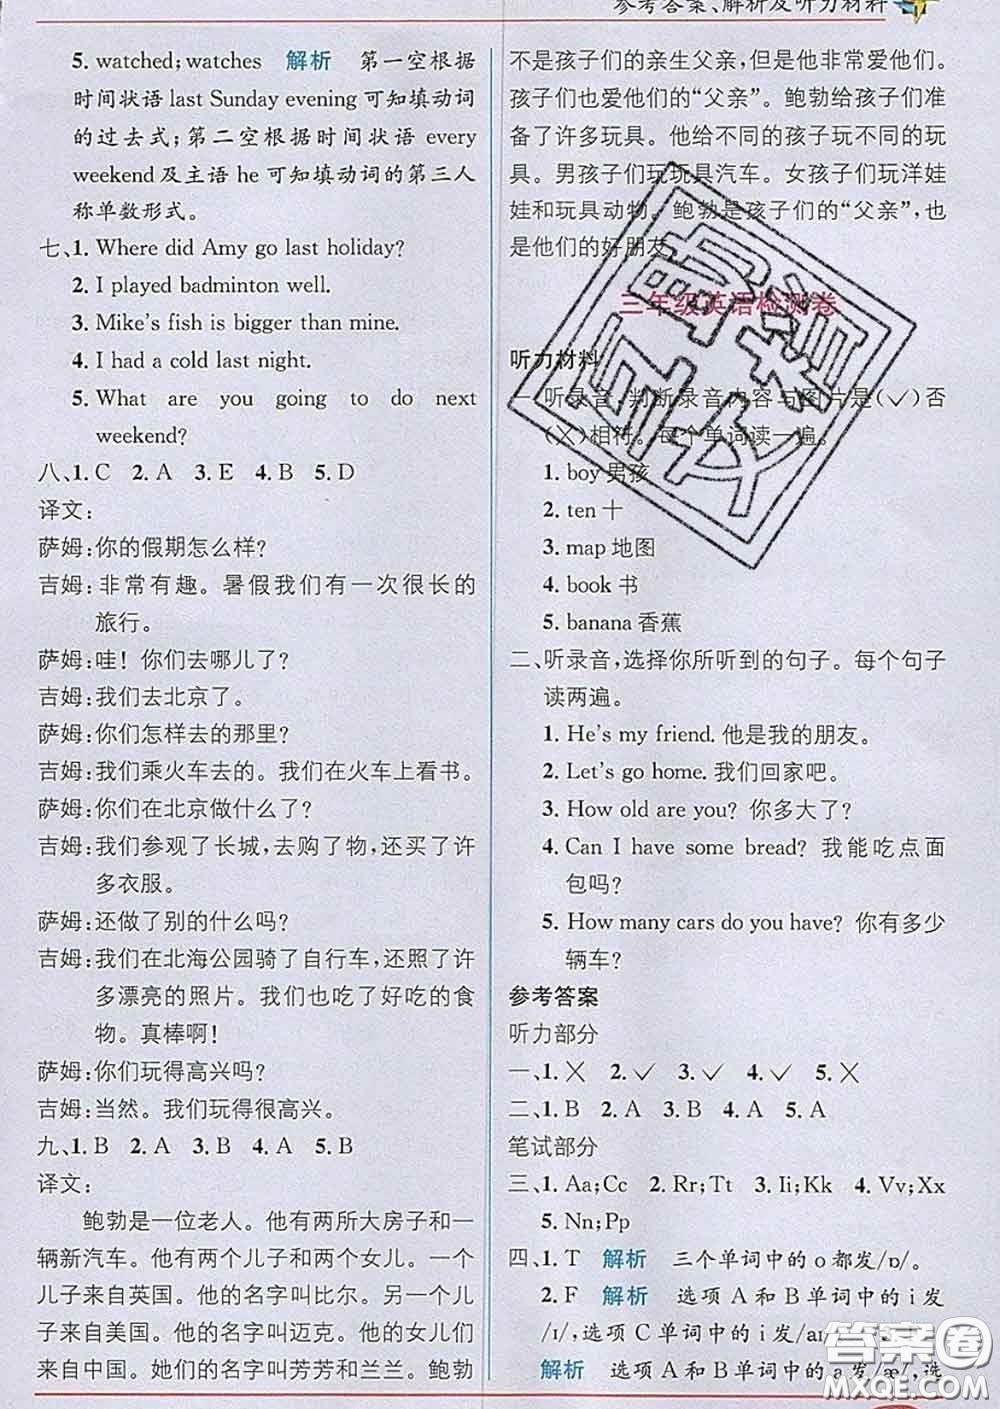 参考答案、解析及听力材料
5. watched; watches 解析 第一空根据
时间状语 last Sunday evening 可知填动词
的过去式;第二空根据时间状语 every
weekend 及主语 he 可知填动词的第三人
称单数形式。
七、1. Where did Amy go last holiday?
2. I played badminton well.
3. Mike's fish is bigger than mine.
4. I had a cold last night.
5. What are you going to do next
weekend?
八、1. C 2. A 3. E 4. B 5. D
译文:
萨姆:你的假期怎么样?
吉姆:非常有趣。暑假我们有一次很长的
旅行。
萨姆:哇!你们去哪儿了?
吉姆:我们去北京了。
萨姆:你们怎样去的那里?
吉姆:我们乘火车去的。我们在火车上看书。
萨姆:你们在北京做什么了?
吉姆:我们参观了长城,去购了物,还买了许
多衣服。
萨姆:还做了别的什么吗?
吉姆:我们在北海公园骑了自行车,还照了许
多漂亮的照片。我们也吃了好吃的食
物。真棒啊!
萨姆:你们玩得高兴吗?
吉姆:当然。我们玩得很高兴。
九、1. B 2. A 3. B 4. A 5. B
译文:
鲍勃是一位老人。他有两所大房子和一
辆新汽车。他有两个儿子和两个女儿。一个
儿子来自英国。他的名字叫比尔。另一个儿
子来自美国。他的名字叫迈克。他的女儿们
来自中国。她们的名字叫芳芳和兰兰。鲍勃
不是孩子们的亲生父亲,但是他非常爱他们。
孩子们也爱他们的“父亲”。鲍勃给孩子们准
备了许多玩具。他给不同的孩子玩不同的玩
具。男孩子们玩玩具汽车。女孩子们玩洋娃
娃和玩具动物。鲍勃是孩子们的“父亲”,也
是他们的好朋友。
三年级英语检测卷
听力材料
一、听录音,判断录音内容与图片是(✓)否
(✗)相符。每个单词读一遍。
1. boy 男孩
2. ten 十
3. map 地图
4. book 书
5. banana 香蕉
二、听录音,选择你所听到的句子。每个句子
读两遍。
1. He's my friend. 他是我的朋友。
2. Let's go home. 我们回家吧。
3. How old are you? 你多大了?
4. Can I have some bread? 我能吃点面
包吗?
5. How many cars do you have? 你有多少
辆车?
参考答案
听力部分
一、1. ✗ 2. ✓ 3. ✓ 4. ✓ 5. ✗
二、1. B 2. A 3. B 4. A 5. A
笔试部分
三、1. Aa;Cc 2. Rr;Tt 3. Ii;Kk 4. Vv;Xx
5. Nn;Pp
四、1. T 解析 三个单词中的 o 都发/ɒ/。
2. F 解析 选项 A 和 B 单词中的 i 发
/ɪ/,选项 C 单词中的 i 发/aɪ
解析 选项 A 和 B 单词中的 a 发/æ/,选
答案圈
MXQE.COM